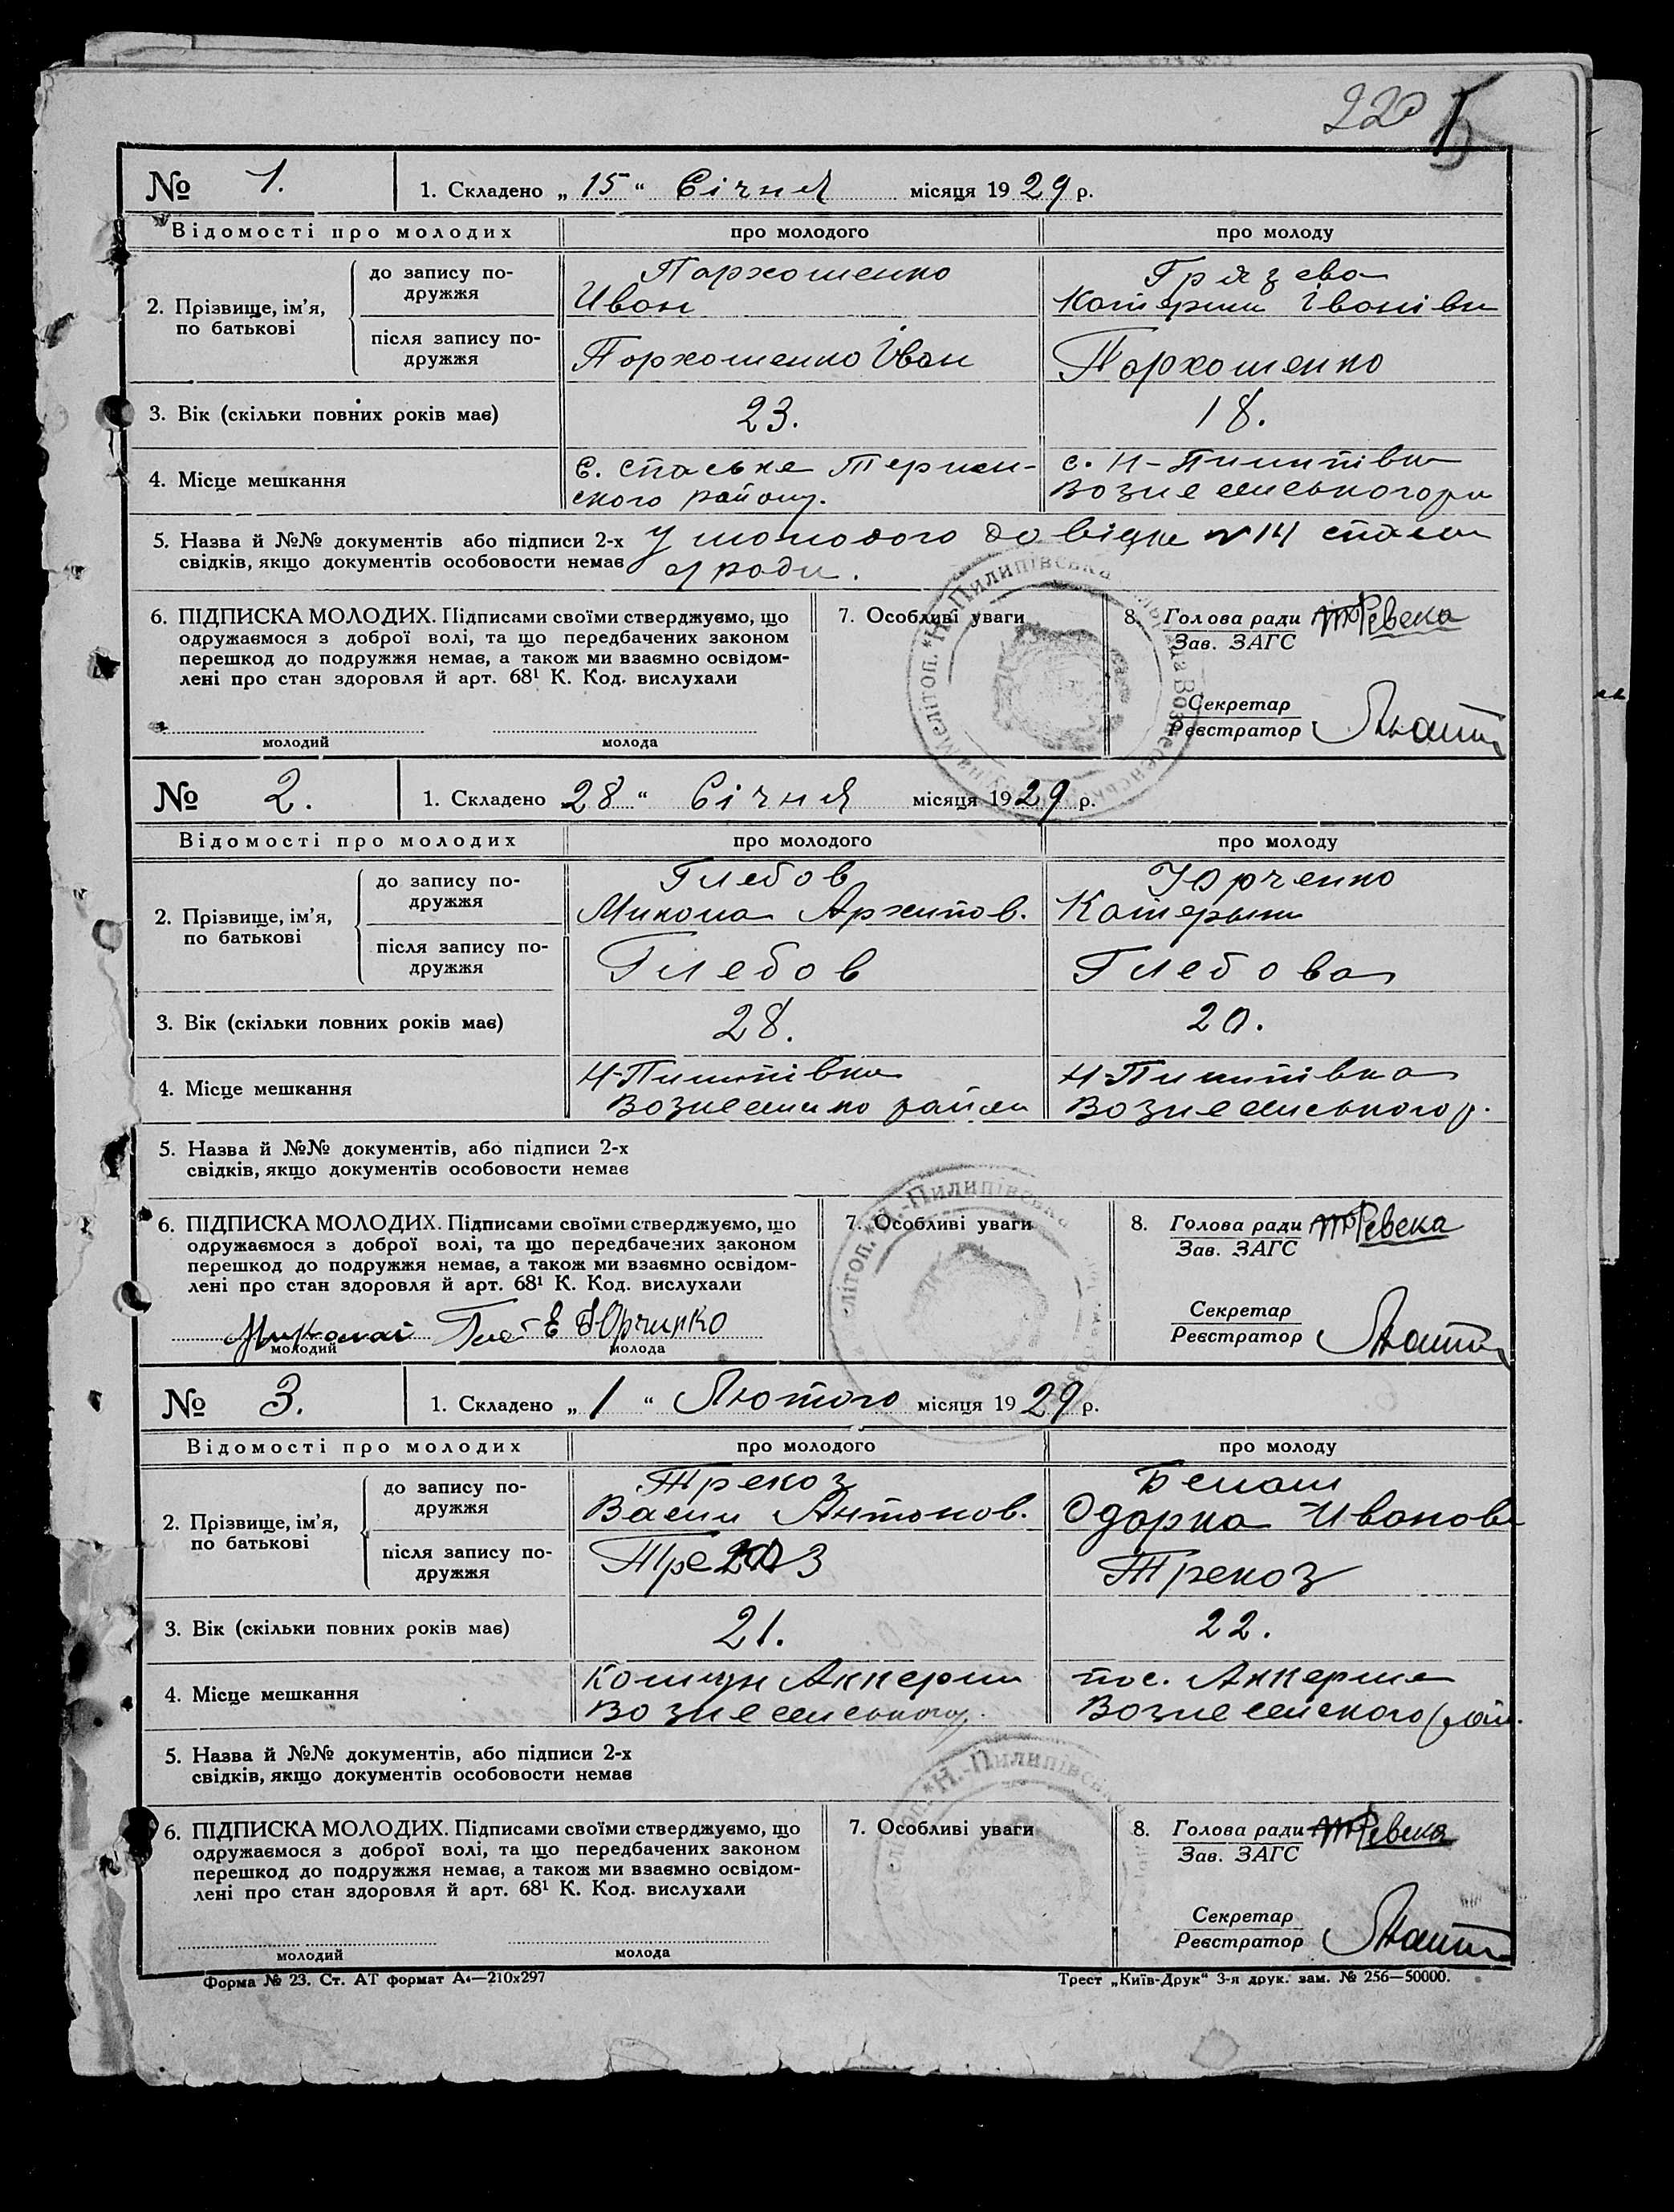 220
№ 1.
1. Складено „ 15 “ Січня місяця 1929 р.
Відомості про молодих
про молодого
про молоду
2. Прізвище, ім’я, по батькові
до запису подружжя
Пархоменко
Иван
Грязева
Катерина Іванівн
після запису подружжя
Пархоменко Іван
Пархоменко
3. Вік (скільки повних років має)
23.
18.
4. Місце мешкання
С. Спаське
ского району.
с. Н-Пилипівка
5. Назва й №№ документів або підписи 2-х
свідків, якщо документів особовости немає
У молодого довідка №
ради.
6. ПІДПИСКА МОЛОДИХ. Підписами своїми стверджуємо, що
одружаємося з доброї волі, та що передбачених законом
перешкод до подружжя немає, а також ми взаємно освідом-
лені про стан здоровля й арт. 68¹ К. Код. вислухали
молодий
молода
7. Особливі уваги
8. Голова ради
Ревека
Зав. ЗАГС
Секретар
Реєстратор
№ 2.
1. Складено 28 “ Січня місяця 1929 р.
Відомості про молодих
про молодого
про молоду
2. Прізвище, ім’я, по батькові
до запису подружжя
Глебов
Микола Архипов.
Юрченко
Катерына
після запису подружжя
Глебов
Глебова
3. Вік (скільки повних років має)
28.
20.
4. Місце мешкання
Н-Пилипівка
Н-Пилипівка
5. Назва й №№ документів, або підписи 2-х
свідків, якщо документів особовости немає
6. ПІДПИСКА МОЛОДИХ. Підписами своїми стверджуємо, що
одружаємося з доброї волі, та що передбачених законом
перешкод до подружжя немає, а також ми взаємно освідом-
лені про стан здоровля й арт. 68¹ К. Код. вислухали
молодий
молода
7. Особливі уваги
8. Голова ради
Ревека
Зав. ЗАГС
Секретар
Реєстратор
№ 3.
1. Складено „ 1 “ Лютого місяця 1929 р.
Відомості про молодих
про молодого
про молоду
2. Прізвище, ім’я, по батькові
до запису подружжя
Трекоз
Васил Антонов.
Белаш
Одарка Иванов
після запису подружжя
Трекоз
3. Вік (скільки повних років має)
21.
22.
4. Місце мешкання
пос.
5. Назва й №№ документів, або підписи 2-х
свідків, якщо документів особовости немає
6. ПІДПИСКА МОЛОДИХ. Підписами своїми стверджуємо, що
одружаємося з доброї волі, та що передбачених законом
перешкод до подружжя немає, а також ми взаємно освідом-
лені про стан здоровля й арт. 68¹ К. Код. вислухали
молодий
молода
7. Особливі уваги
8. Голова ради
Ревека
Зав. ЗАГС
Секретар
Реєстратор
Форма № 23. Ст. АТ формат А₄—210х297
Трест „Київ-Друк“ 3-я друк. зам. № 256—50000.